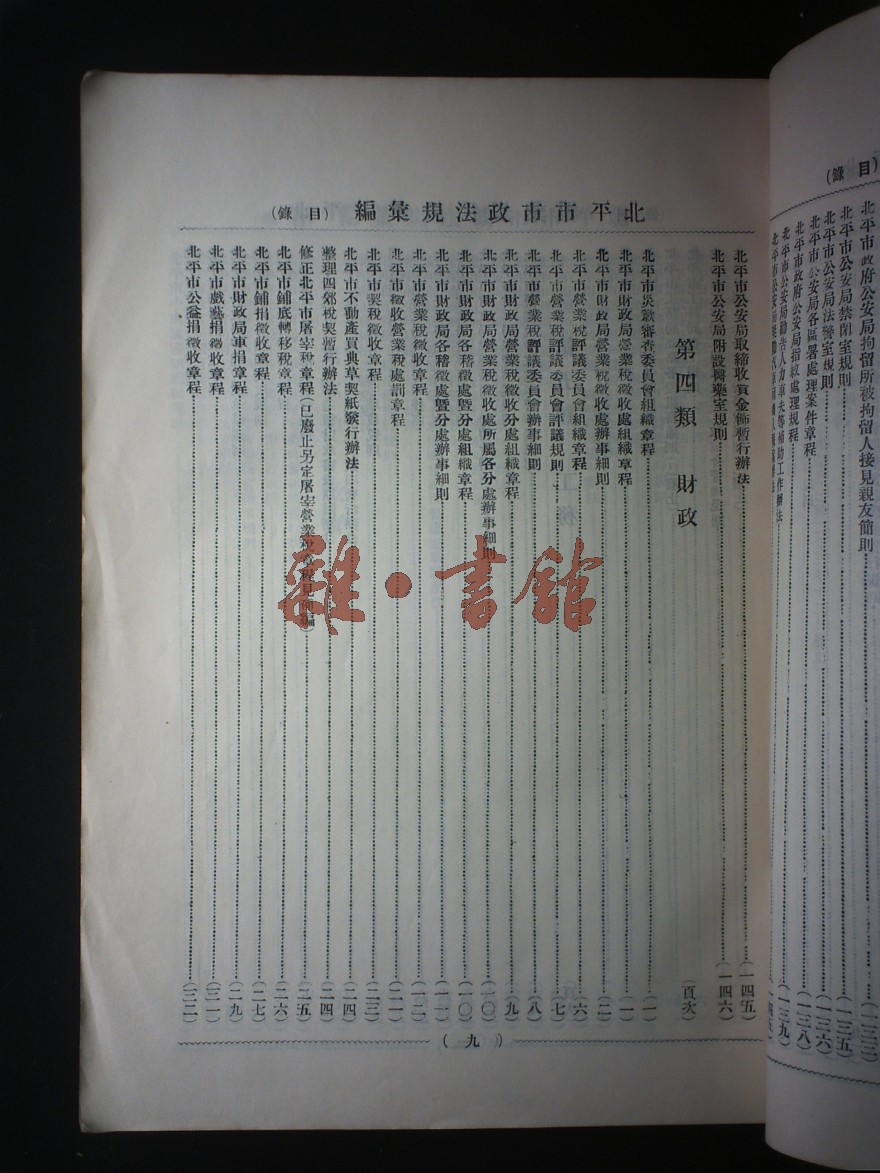 (目錄)
北平市政府公安局拘留所被拘留人接見親友簡則(一三三)
北平市公安局禁閉室規則(一三五)
北平市公安局法警室規則(一三六)
北平市公安局各區署處理案件章程(一三八)
北平市政府公安局指紋處理規程(一三九)
北平市市政法規彙編(目錄)
北平市公安局取締收買金飾暫行辦法(一四五)
北平市公安局附設醫藥室規則(一四六)
第四類 財政(頁次)
北平市災歉審查委員會組織章程(一)
北平市財政局營業稅徵收處組織章程(一)
北平市財政局營業稅徵收處辦事細則(二)
北平市營業稅評議委員會組織章程(六)
北平市營業稅評議委員會評議規則(七)
北平市營業稅評議委員會辦事細則(八)
北平市財政局營業稅徵收分處組織章程(九)
北平市財政局營業稅徵收處所屬各分處辦事細則(一〇)
北平市財政局各稽徵處暨分處組織章程(一〇)
北平市財政局各稽徵處暨分處辦事細則(一一)
北平市營業稅徵收章程(一二)
北平市徵收營業稅處罰章程(二一)
北平市契稅徵收章程(二三)
北平市不動產買典草契紙發行辦法(二四)
整理四郊稅契暫行辦法(二四)
修正北平市屠宰稅章程(已廢止另定屠宰營業稅章程見續編)(二五)
北平市鋪底轉移稅章程(二六)
北平市鋪捐徵收章程(二七)
北平市財政局車捐章程(二九)
北平市戲藝捐徵收章程(三一)
北平市公益捐徵收章程(三二)
(九)
雜·書館